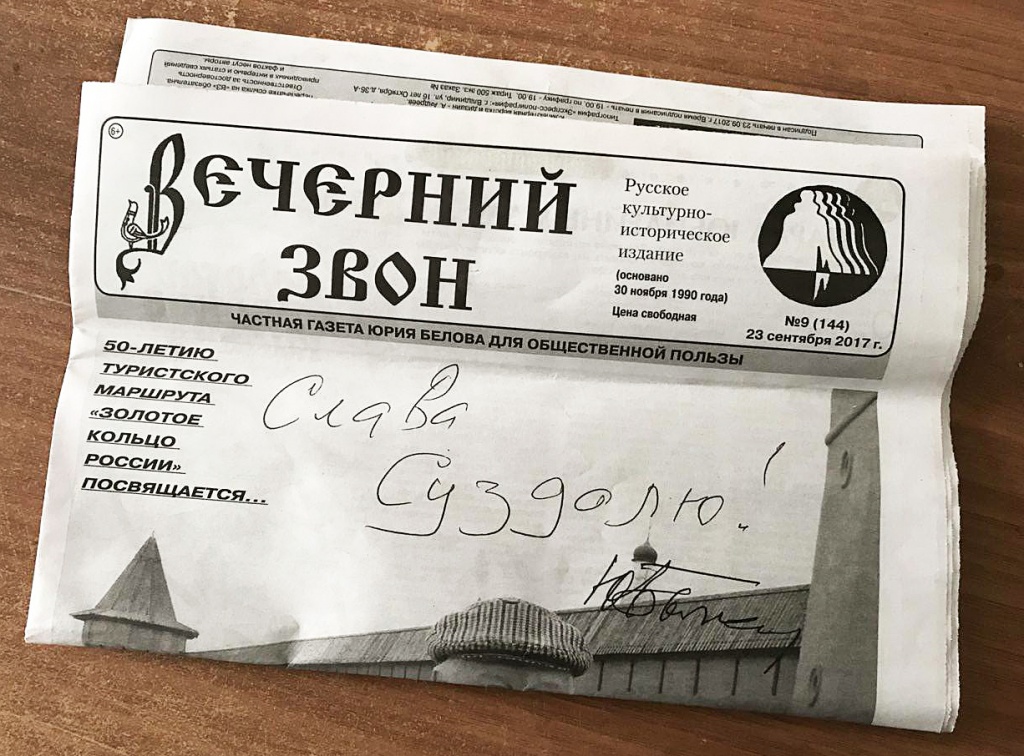 Подписан в печать 23.09.2017 г. Время подписания в печать - 19.00, по графику - 19.00. Тираж 500 экз. Заказ №
Типография «Экспресс-полиграфия»: г. Владимир, ул. 16 лет Октября, д.36-А
Компьютерная верстка и дизайн - А. Андреев.
Ответственность за достоверность
приводимых в статьях и интервью сведений
и фактов несут авторы.
6+
ВЕЧЕРНИЙ
ЗВОН
Русское
культурно-
историческое
издание
(основано
30 ноября 1990 года)
Цена свободная
№9 (144)
23 сентября 2017 г.
ЧАСТНАЯ ГАЗЕТА ЮРИЯ БЕЛОВА ДЛЯ ОБЩЕСТВЕННОЙ ПОЛЬЗЫ
50-ЛЕТИЮ
ТУРИСТСКОГО
МАРШРУТА
«ЗОЛОТОЕ
КОЛЬЦО
РОССИИ»
ПОСВЯЩАЕТСЯ...
Слава
Суздалю!